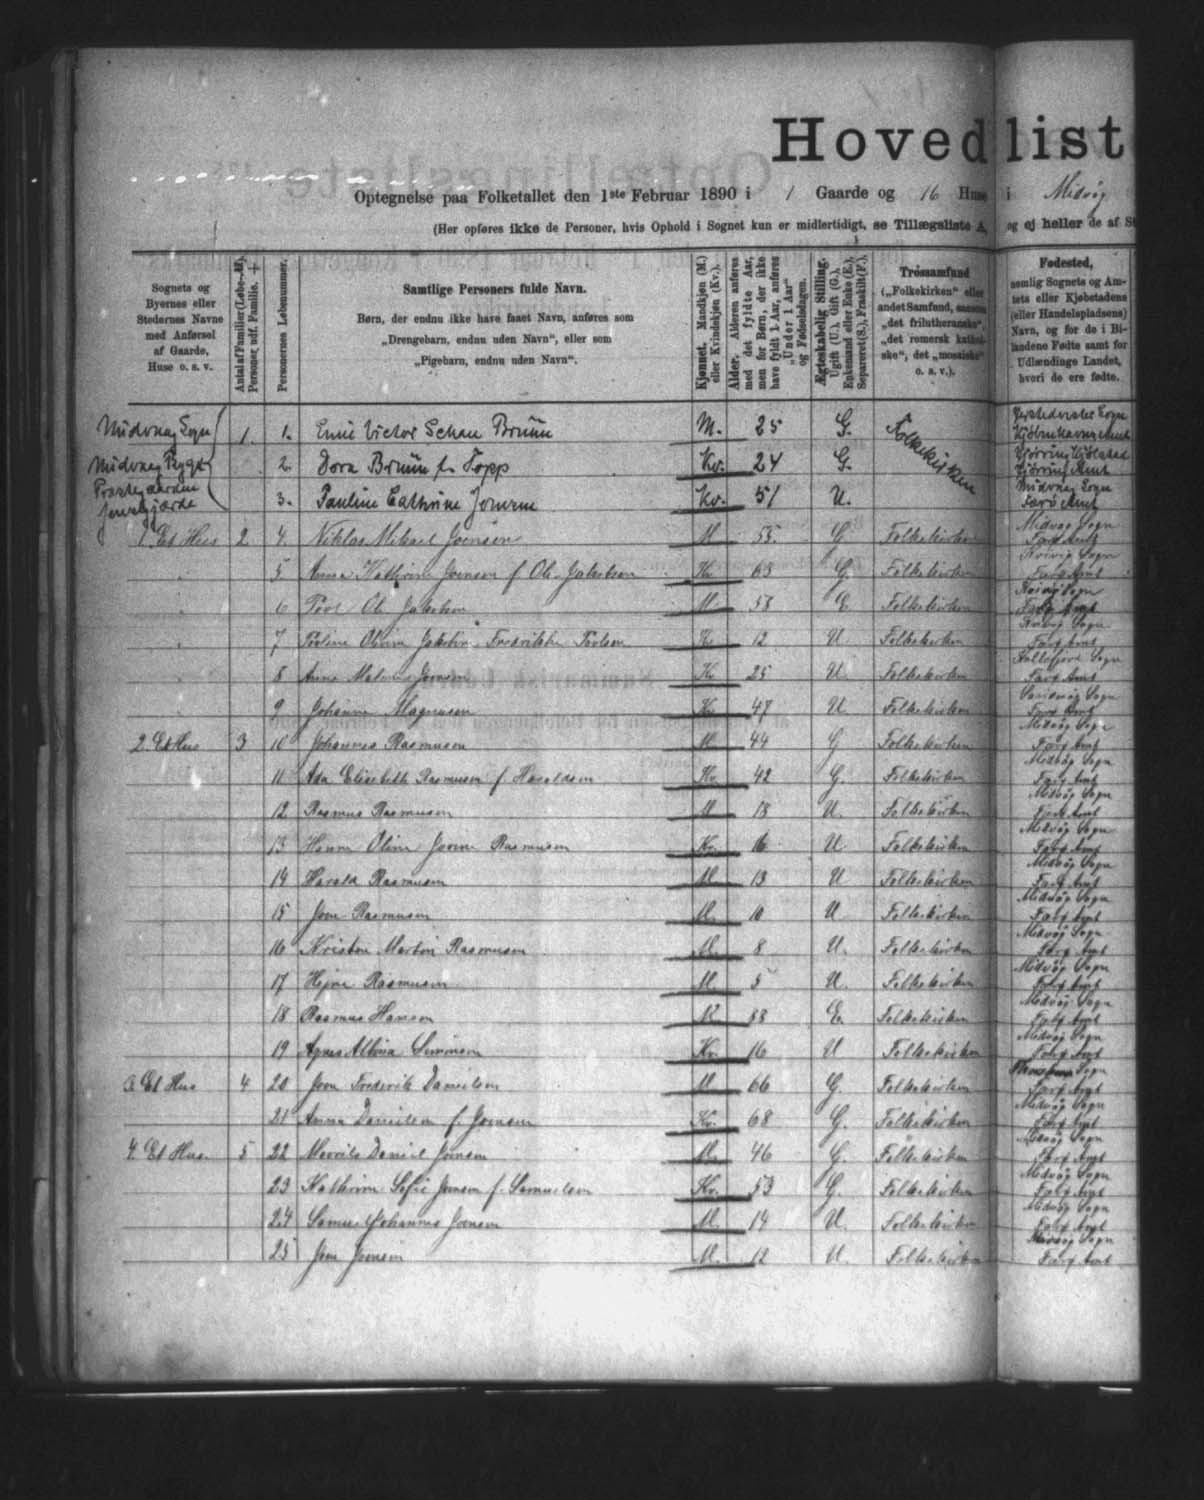 Hovedlist
Optegnelse paa Folketallet den 1ste Februar 1890 i 1 Gaarde og 16 Huse i Midvåg
(Her opføres ikke de Personer, hvis Ophold i Sognet kun er midlertidigt, se Tillægsliste A, og ej heller de af St
Sognets og Byernes eller Stedernes Navne med Anførsel af Gaarde, Huse o. s. v.
Antal af Familier (Løbe-Nr.), Personer udf. Familie. +
Personernes Løbenummer.
Samtlige Personers fulde Navn.
Børn, der endnu ikke have faaet Navn, anføres som
„Drengebarn, endnu uden Navn“, eller som
„Pigebarn, endnu uden Navn“.
Kjønnet. Mandkjøn (M.) eller Kvindekjøn (Kv.).
Alder. Alderen anføres med det fyldte Aar, men for Børn, der ikke have fyldt 1 Aar, anføres „Under 1 Aar“ og Fødselsdagen.
Ægteskabelig Stilling. Ugift (U.), Gift (G.), Enkemand eller Enke (E.), Separeret (S.), Fraskilt (F.).
Trossamfund
(„Folkekirken“ eller andet Samfund, saasom „det frilutheranske“, „det romersk katholske“, det „mosaiske“ o. s. v.).
Fødested,
nemlig Sognets og Amtets eller Kjøbstadens (eller Handelspladsens) Navn, og for de i Bilandene Fødte samt for Udlændinge Landet, hvori de ere fødte.
Midvaag Sogn 1. 1. Emil Victor Schau Bruun M. 25 G. Folkekirken Kjøbenhavns Amt
Midvaag Bygd 2. Dora Bruun f. Topp Kv. 24 G. Hjørring Kjøbstad Hjørring Amt
Præstegaarden 3. Pauline Cathrine Joensen Kv. 51 U. Midvaag Sogn Færø Amt
1. Et Hus 2 4. Niklas Mikael Joensen M 55. G Folkekirken Midvåg Sogn Færø Amt
5 Anna Kathrine Joensen f. Ole Jakobsen Kv 63 G. Folkekirken Sogn Færø Amt
6 Ole Jakobsen M 53 Folkekirken Sogn Færø Amt
7 Jakobsen Fredrikke Kv 12 U. Folkekirken Sogn Færø Amt
8 Anna Joensen K 25 U. Folkekirken Sogn Færø Amt
9 Johanna Magnusen Kv. 47 U Folkekirken Sogn Færø Amt
2. Et Hus 3 10 Johannes Rasmusen M 44 G Folkekirken Midvåg Sogn Færø Amt
11 Ada Elisabeth Rasmusen f. Haraldsen Kv 42 G. Folkekirken Midvåg Sogn Færø Amt
12 Rasmus Rasmusen M 18 U. Folkekirken Midvåg Sogn Færø Amt
13 Hanna Olivia Rasmusen Kv. 16 U Folkekirken Midvåg Sogn Færø Amt
14 Harald Rasmusen M. 13 U Folkekirken Midvåg Sogn Færø Amt
15 Joen Rasmusen M. 10 U Folkekirken Midvåg Sogn Færø Amt
16 Kristen Martin Rasmusen M. 8 U. Folkekirken Midvåg Sogn Færø Amt
17 Rasmusen M. 5 U. Folkekirken Midvåg Sogn Færø Amt
18 Rasmus Hansen M. 88 E. Folkekirken Midvåg Sogn Færø Amt
19 Agnes Simonsen Kv. 16 U Folkekirken Midvåg Sogn Færø Amt
3. Et Hus 4 20 Joen Frederik Danielsen M 66 G. Folkekirken Sogn Færø Amt
21 Anna Danielsen f. Joensen Kv. 68 G. Folkekirken Midvåg Sogn Færø Amt
4. Et Hus 5 22 Daniel Joensen M. 46 G. Folkekirken Midvåg Sogn Færø Amt
23 Kathrine Sofie Joensen f. Samuelsen Kv. 53 G. Folkekirken Midvåg Sogn Færø Amt
24 Samuel Johannes Joensen M. 14 U. Folkekirken Midvåg Sogn Færø Amt
25 Joen Joensen M. 12 U. Folkekirken Midvåg Sogn Færø Amt